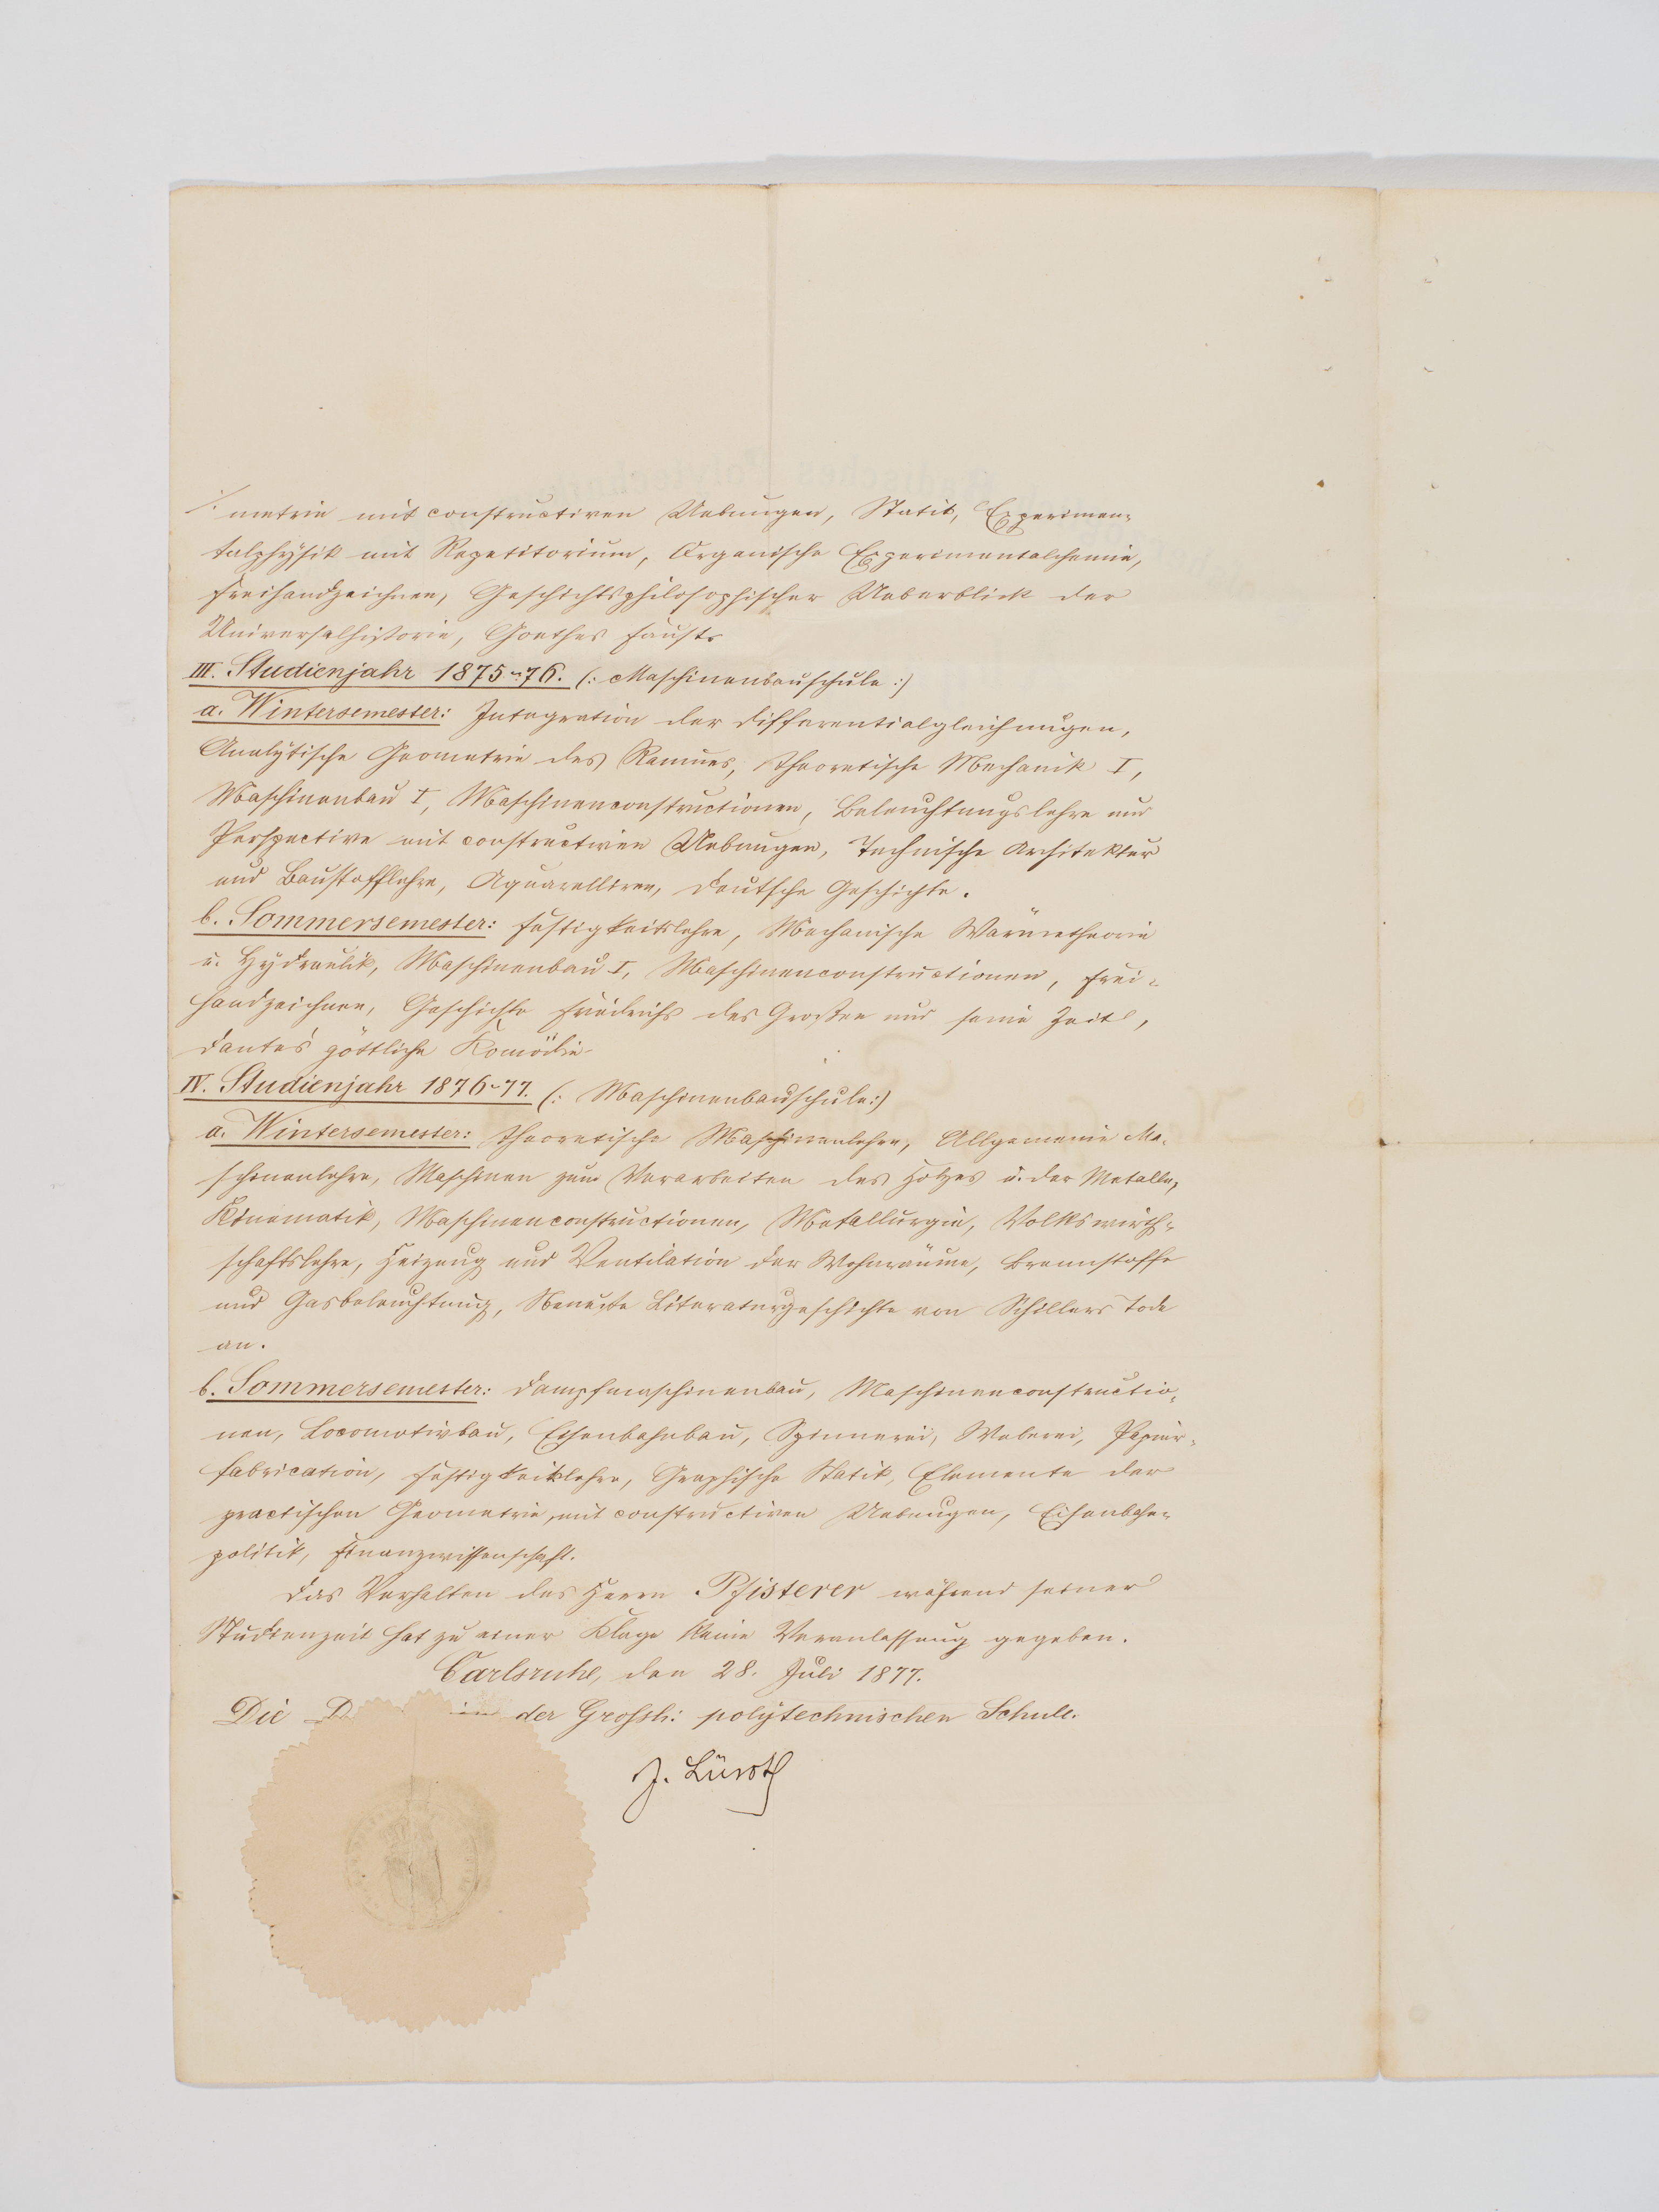 ./. metrie mit constructiven Uebungen, Statik, Experimen=
talphysik mit Repetitorium, Organische Experimentalchemie,
Freihandzeichnen, Geschichtsphilosophischer Ueberblick der
Universalhistorie, Goethes Faust.
III. Studienjahr 1875-76. (: Maschinenbauschule :)
a. Wintersemester: Integration der Differentialgleichungen,
Analytische Geometrie des Raumes, Theoretische Mechanik I,
Maschinenbau I, Maschinenconstructionen, Beleuchtungslehre und
Perspective mit constructiven Uebungen, Technische Architektur
und Baustofflehre, Aquarelliren, Deutsche Geschichte.
b. Sommersemester: Festigkeitslehre, Mechanische Wärmetheorie
u. Hydraulik, Maschinenbau I, Maschinenconstructionen, Frei=
handzeichnen, Geschichte Friedrichs des Großen und seine Zeit,
Dante's göttliche Komödie.
IV. Studienjahr 1876-77. (: Maschinenbauschule :)
a. Wintersemester: Theoretische Maschinenlehre, Allgemeine Ma=
schinenlehre, Maschinen zum Verarbeiten des Holzes u. der Metalle,
Kinematik, Maschinenconstructionen, Metallurgie, Volkswirth=
schaftslehre, Heizung und Ventilation der Wohnräume, Brennstoffe
und Gasbeleuchtung, Neueste Literaturgeschichte von Schillers Tode
an.
b. Sommersemester: Dampfmaschinenbau, Maschinenconstructio=
nen, Locomotivbau, Eisenbahnbau, Spinnerei, Weberei, Papier=
fabrication, Festigkeitslehre, Graphische Statik, Elemente der
practischen Geometrie, mit constructiven Uebungen, Eisenbahn=
politik, Finanzwissenschaft.
Das Verhalten des Herrn Pfisterer während seiner
Studienzeit hat zu einer Klage keine Veranlassung gegeben.
Carlsruhe, den 28. Juli 1877.
Die der Grossh: polytechnischen Schule.
J. Lüroth